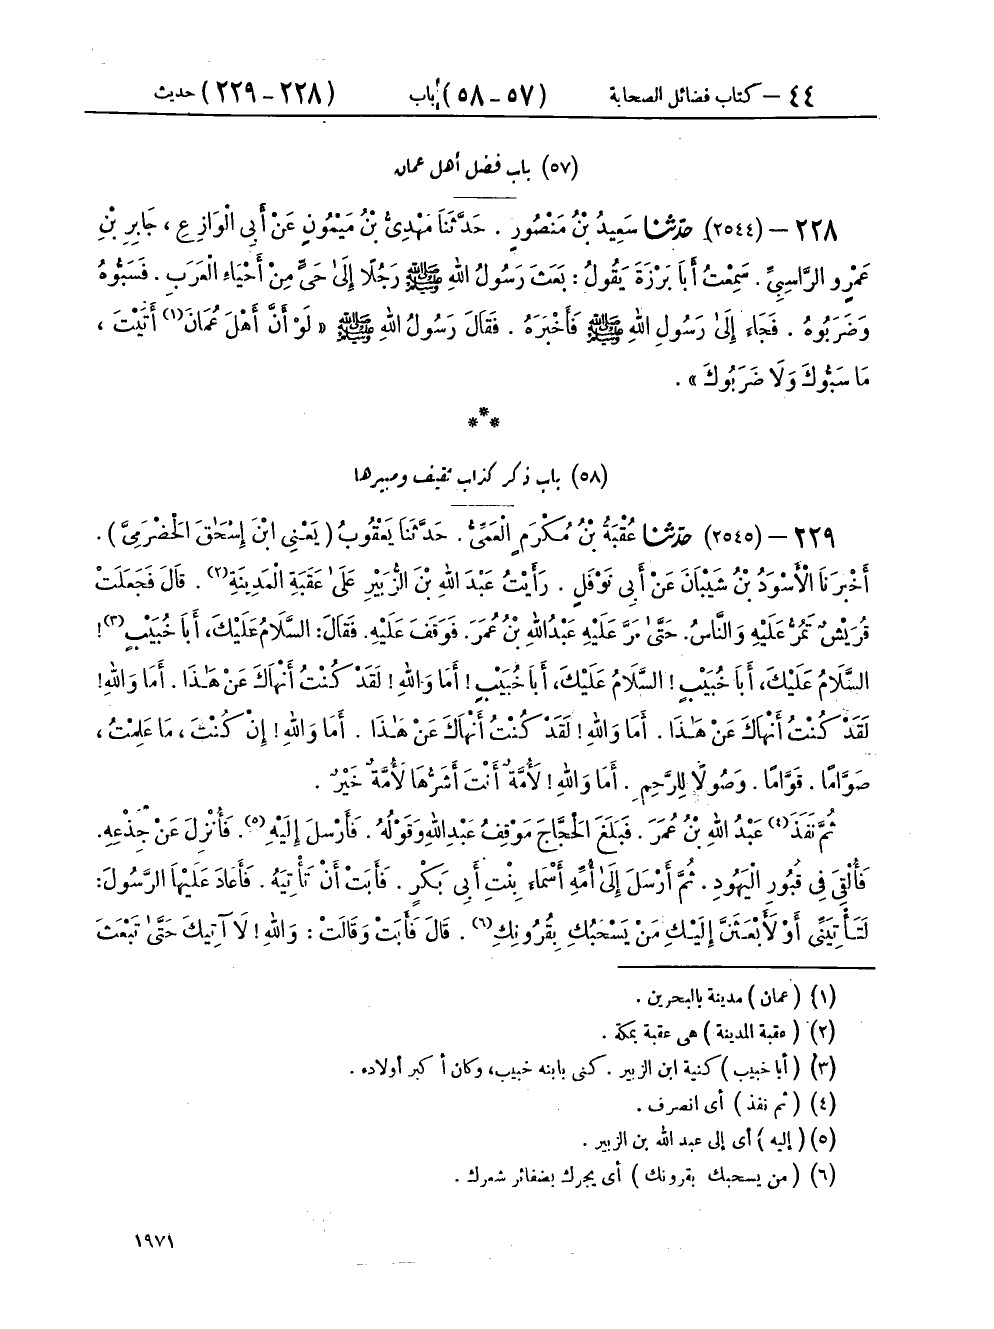 ٤٤ – كتاب فضائل الصحابة (٥٧ – ٥٨) باب (٢٢٨ – ٢٢٩) حديث
(٥٧) باب فضل أهل عمان
٢٢٨ – (٢٥٤٤) حَدَّثَنَا سَعِيدُ بْنُ مَنْصُورٍ . حَدَّثَنَا مَهْدِىُّ بْنُ مَيْمُونٍ عَنْ أَبِى الْوَازِعِ ، جَابِرِ بْنِ
عَمْرٍو الرَّاسِبِىِّ . سَمِعْتُ أَبَا بَرْزَةَ يَقُولُ : بَعَثَ رَسُولُ اللهِ ﷺ رَجُلًا إِلَىٰ حَىٍّ مِنْ أَحْيَاءِ الْعَرَبِ . فَسَبُّوهُ
وَضَرَبُوهُ . فَجَاءَ إِلَىٰ رَسُولِ اللهِ ﷺ فَأَخْبَرَهُ . فَقَالَ رَسُولُ اللهِ ﷺ « لَوْ أَنَّ أَهْلَ عُمَانَ(١) أَتَيْتَ ،
مَا سَبُّوكَ وَلَا ضَرَبُوكَ » .
***
(٥٨) باب ذكر كذاب ثقيف ومبيرها
٢٢٩ – (٢٥٤٥) حَدَّثَنَا عُقْبَةُ بْنُ مُكْرَمٍ الْعَمِّىُّ . حَدَّثَنَا يَعْقُوبُ ( يَعْنِى ابْنَ إِسْحَٰقَ الْحَضْرَمِىَّ ) .
أَخْبَرَنَا الْأَسْوَدُ بْنُ شَيْبَانَ عَنْ أَبِى نَوْفَلٍ . رَأَيْتُ عَبْدَ اللهِ بْنَ الزُّبَيْرِ عَلَىٰ عَقَبَةِ الْمَدِينَةِ(٢) . قَالَ فَجَعَلَتْ
قُرَيْشٌ تَمُرُّ عَلَيْهِ وَالنَّاسُ. حَتَّىٰ مَرَّ عَلَيْهِ عَبْدُ اللهِ بْنُ عُمَرَ. فَوَقَفَ عَلَيْهِ. فَقَالَ: السَّلَامُ عَلَيْكَ، أَبَا خُبَيْبٍ(٣)!
السَّلَامُ عَلَيْكَ، أَبَا خُبَيْبٍ! السَّلَامُ عَلَيْكَ، أَبَا خُبَيْبٍ! أَمَا وَاللهِ! لَقَدْ كُنْتُ أَنْهَاكَ عَنْ هَٰذَا . أَمَا وَاللهِ!
لَقَدْ كُنْتُ أَنْهَاكَ عَنْ هَٰذَا . أَمَا وَاللهِ! لَقَدْ كُنْتُ أَنْهَاكَ عَنْ هَٰذَا . أَمَا وَاللهِ! إِنْ كُنْتَ، مَا عَلِمْتُ،
صَوَّامًا . قَوَّامًا . وَصُولًا لِلرَّحِمِ . أَمَا وَاللهِ! لَأُمَّةٌ أَنْتَ أَشَرُّهَا لَأُمَّةٌ خَيْرٌ .
ثُمَّ نَفَذَ(٤) عَبْدُ اللهِ بْنُ عُمَرَ . فَبَلَغَ الْحَجَّاجَ مَوْقِفُ عَبْدِ اللهِ وَقَوْلُهُ . فَأَرْسَلَ إِلَيْهِ(٥). فَأُنْزِلَ عَنْ جِذْعِهِ.
فَأُلْقِىَ فِى قُبُورِ الْيَهُودِ . ثُمَّ أَرْسَلَ إِلَىٰ أُمِّهِ أَسْمَاءَ بِنْتِ أَبِى بَكْرٍ . فَأَبَتْ أَنْ تَأْتِيَهُ . فَأَعَادَ عَلَيْهَا الرَّسُولَ:
لَتَأْتِيَنِّى أَوْ لَأَبْعَثَنَّ إِلَيْكِ مَنْ يَسْحَبُكِ بِقُرُونِكِ(٦) . قَالَ فَأَبَتْ وَقَالَتْ : وَاللهِ! لَا آتِيكَ حَتَّىٰ تَبْعَثَ
(١) ( عمان ) مدينة بالبحرين .
(٢) ( عقبة المدينة ) هى عقبة بمكة .
(٣) ( أبا خبيب ) كنية ابن الزبير . كنى بابنه خبيب، وكان أكبر أولاده .
(٤) ( ثم نفذ ) أى انصرف .
(٥) ( إليه ) أى إلى عبد الله بن الزبير .
(٦) ( من يسحبك بقرونك ) أى يجرك بضفائر شعرك .
١٩٧١